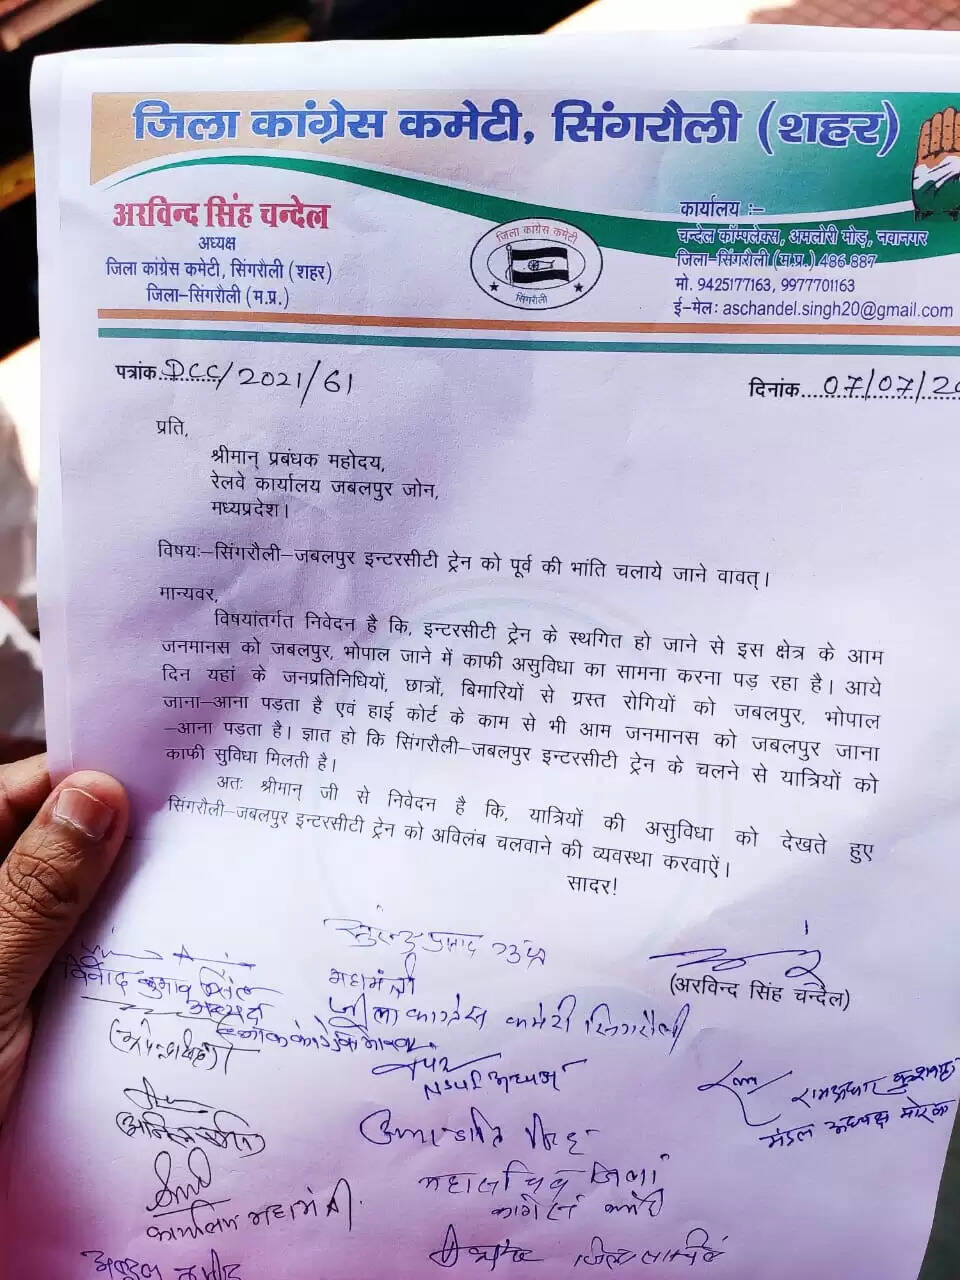 जिला कांग्रेस कमेटी, सिंगरौली (शहर)
अरविन्द सिंह चन्देल
अध्यक्ष
जिला कांग्रेस कमेटी, सिंगरौली (शहर)
जिला–सिंगरौली (म.प्र.)
जिला कांग्रेस कमेटी
सिंगरौली
कार्यालय :–
चन्देल कॉम्पलेक्स, अमलोरी मोड़, नवानगर
जिला–सिंगरौली (म.प्र.) 486 887
मो. 9425177163, 9977701163
ई–मेल: aschandel.singh20@gmail.com
पत्रांक DCC/2021/61
दिनांक 07/07/20
प्रति,
श्रीमान् प्रबंधक महोदय,
रेलवे कार्यालय जबलपुर जोन,
मध्यप्रदेश।
विषयः–सिंगरौली–जबलपुर इन्टरसीटी ट्रेन को पूर्व की भांति चलाये जाने वावत्।
मान्यवर,
विषयांतर्गत निवेदन है कि, इन्टरसीटी ट्रेन के स्थगित हो जाने से इस क्षेत्र के आम
जनमानस को जबलपुर, भोपाल जाने में काफी असुविधा का सामना करना पड़ रहा है। आये
दिन यहां के जनप्रतिनिधियों, छात्रों, बिमारियों से ग्रस्त रोगियों को जबलपुर, भोपाल
जाना–आना पड़ता है एवं हाई कोर्ट के काम से भी आम जनमानस को जबलपुर जाना
–आना पड़ता है। ज्ञात हो कि सिंगरौली–जबलपुर इन्टरसीटी ट्रेन के चलने से यात्रियों को
काफी सुविधा मिलती है।
अतः श्रीमान् जी से निवेदन है कि, यात्रियों की असुविधा को देखते हुए
सिंगरौली–जबलपुर इन्टरसीटी ट्रेन को अविलंब चलवाने की व्यवस्था करवाऐं।
सादर!
(अरविन्द सिंह चन्देल)
महामंत्री
जीला कांग्रेस कमेटी सिंगरौली
अध्यक्ष
NSUI अध्यक्ष
मंडल अध्यक्ष मोरवा
महासचिव जिला
महामंत्री